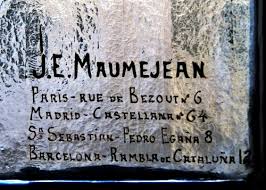 J.E. MAUMEJEAN
PARIS-RUE DE BEZOUT Nº 6
MADRID-CASTELLANA Nº 64
Sn SEBASTIAN-PEDRO EGAÑA 8
BARCELONA-RAMBLA DE CATALUÑA